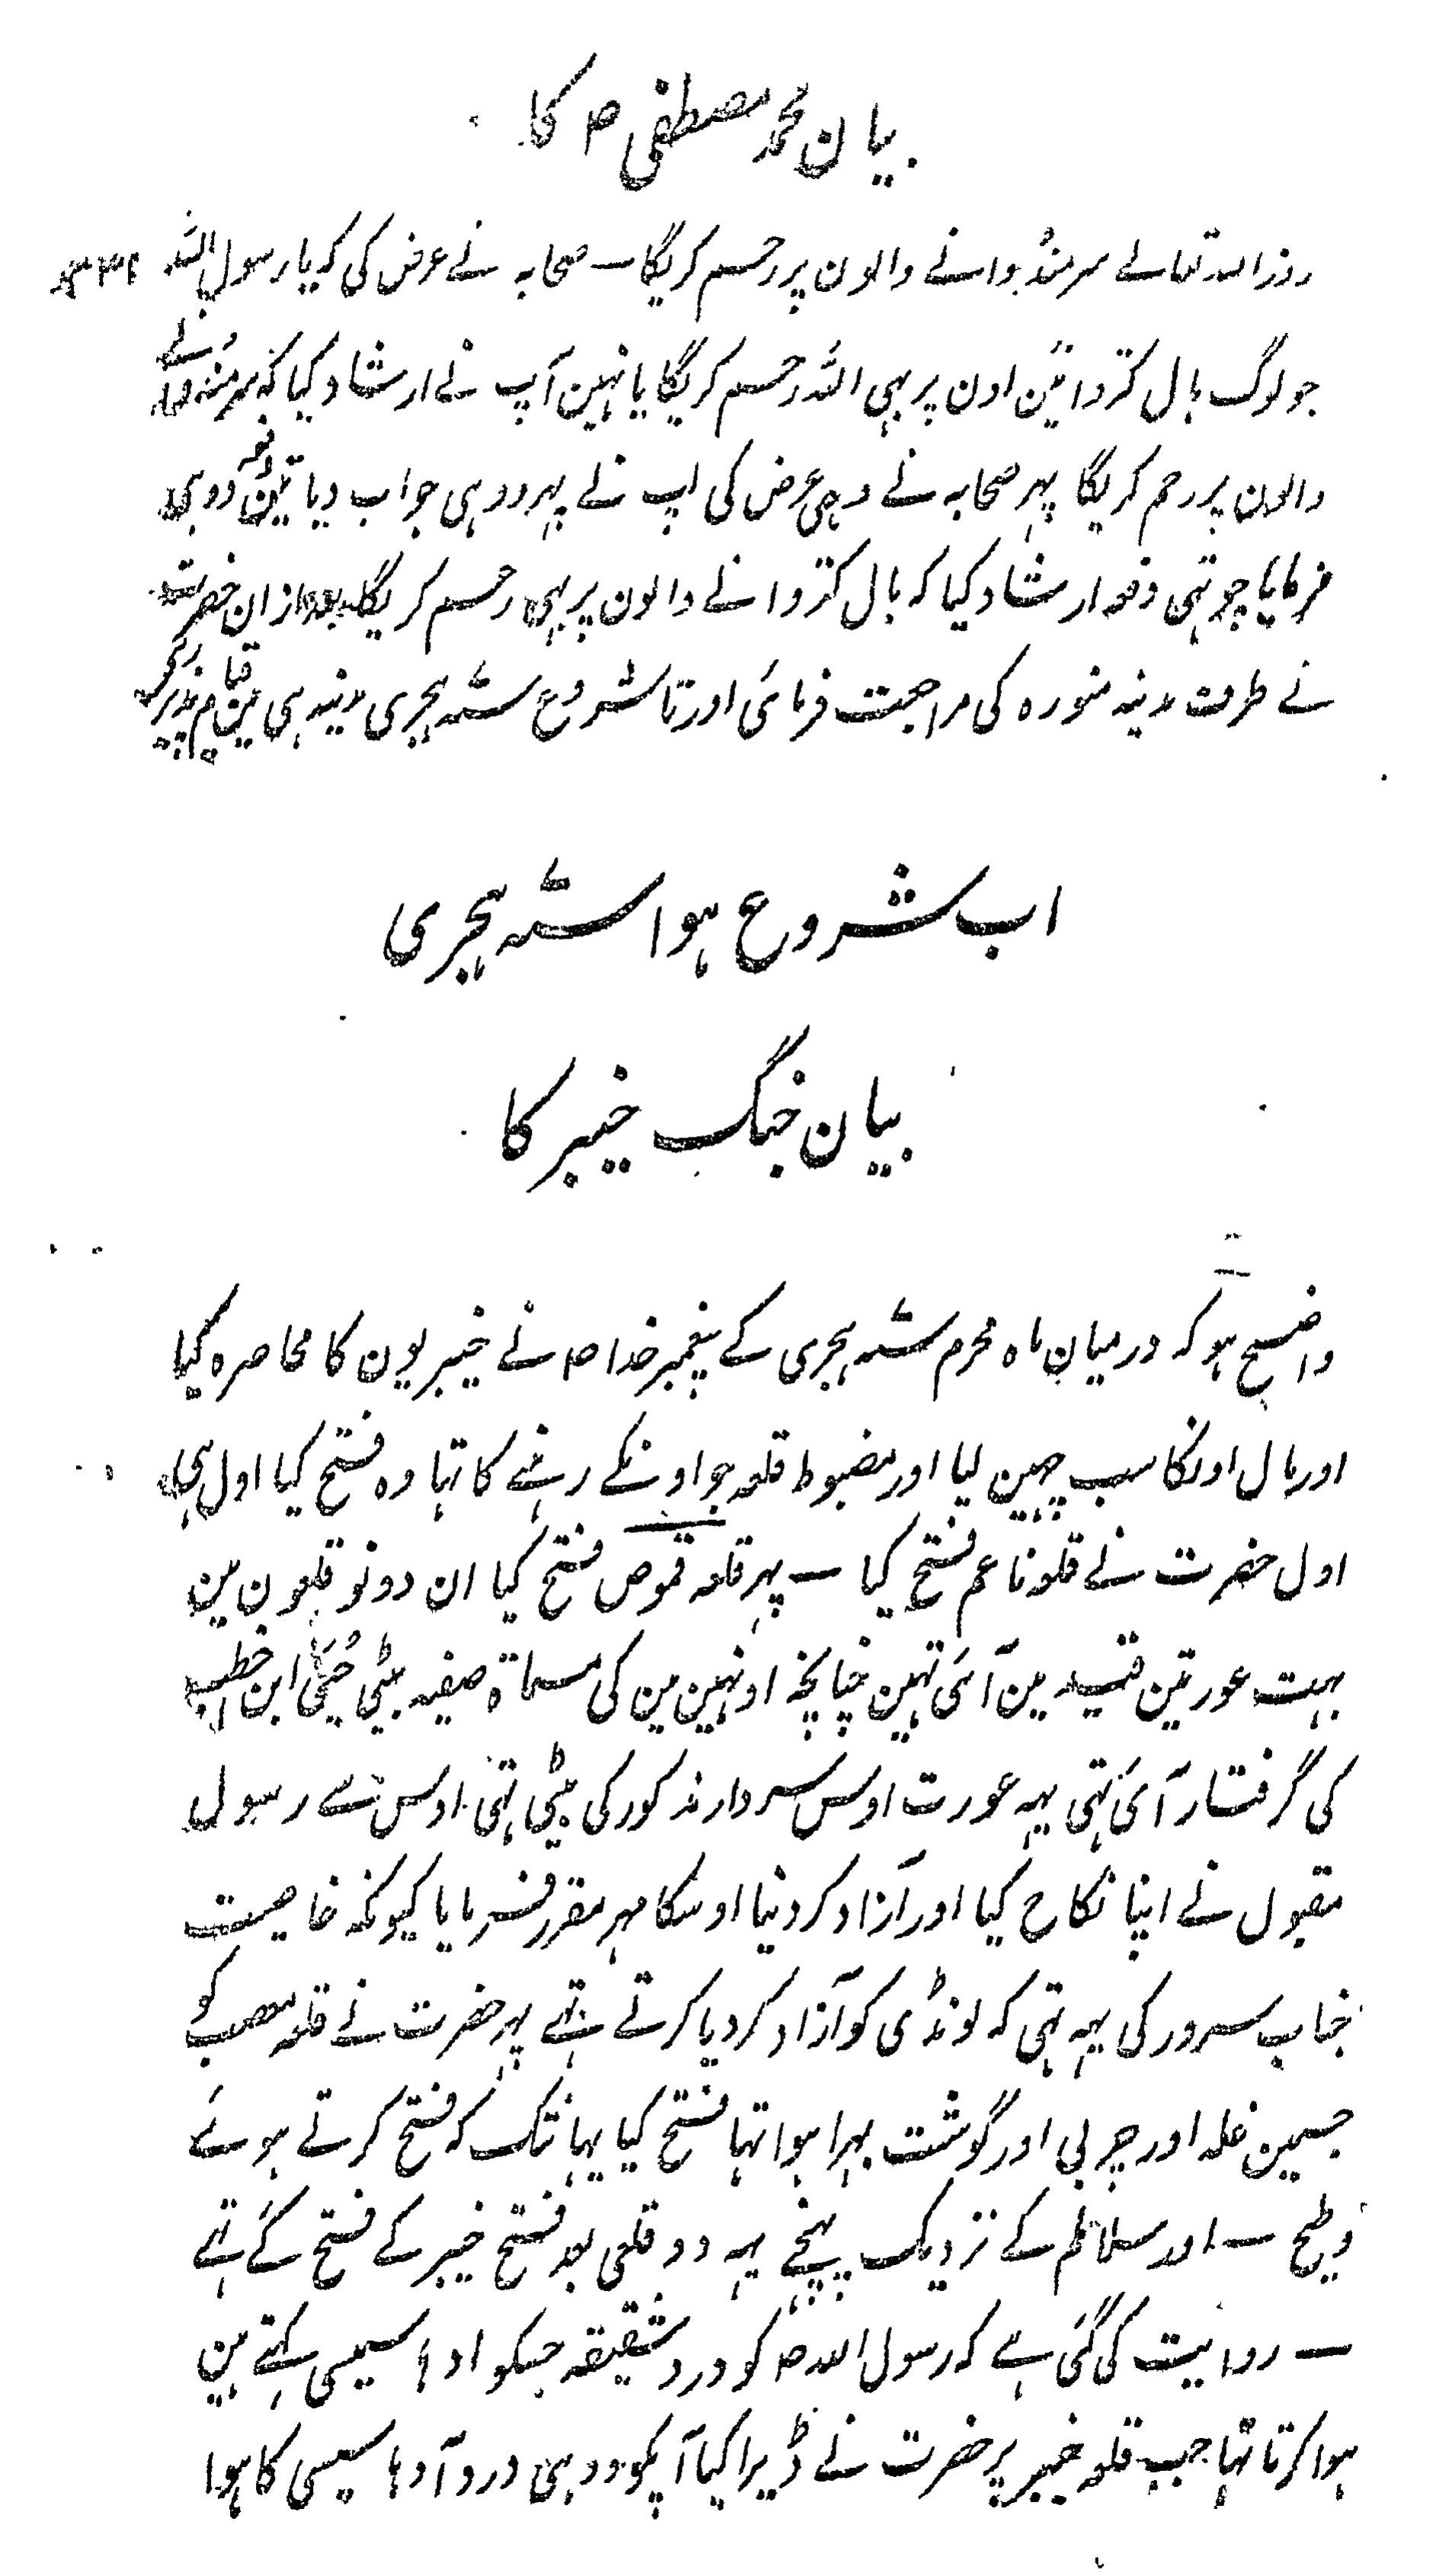 بیان محمد مصطفی ص کا
روز اللہ تعالے سر منڈوانے والون پر رحم کریگا — صحابہ نے عرض کی کہ یا رسول اللہ
جو لوگ بال کتروائین اون پر بہی اللہ رحم کریگا یا نہین آپ نے ارشاد کیا کہ سر منڈوانے
والون پر رحم کریگا پہر صحابہ نے وہی عرض کی اپ نے پہر ووہی جواب دیا تین دفعہ ووہی
فرمایا چوتہی دفعہ ارشاد کیا کہ بال کتروانے والون پر بہی رحم کریگا بعد ازان حضرت
نے طرف مدینہ منورہ کی مراجعت فرمائی اور تا شروع سنہ ۷ ہجری مدینہ ہی مین قیام پذیر رہی
اب شروع ہوا سنہ ۷ ہجری
بیان جنگ خیبر کا
واضح ہو کہ درمیان ماہ محرم سنہ ۷ ہجری کے پیغمبر خدا ص نے خیبریون کا محاصرہ کیا
اور مال اونکا سب چہین لیا اور مضبوط قلعہ جو اونکے رہنے کا تہا وہ فتح کیا اول ہی
اول حضرت نے قلعہ ناعم فتح کیا — پہر قلعہ قموص فتح کیا ان دونو قلعون مین
بہت عورتین قید مین آئی تہین چنانچہ اونہین مین کی مسماۃ صفیہ بیٹی حُیَی ابن اخطب
کی گرفتار آئی تہی یہہ عورت اوس سردار مذکور کی بیٹی تہی اوس سے رسول
مقبول نے اپنا نکاح کیا اور آزاد کر دنیا اوسکا مہر مقرر فرمایا کیونکہ خاصیت
جناب سرور کی یہہ تہی کہ لونڈی کو آزاد کر دیا کرتے تہے پہر حضرت نے قلعہ صعب کو
جسمین غلہ اور چربی اور گوشت بہرا ہوا تہا فتح کیا یہانتک کہ فتح کرتے ہوئے
وطیح — اور سلالم کے نزدیک پہنچے یہہ دو قلعی بعد فتح خیبر کے فتح کئے تہے
— روایت کی گئی ہے کہ رسول اللہ ص کو درد شقیقہ جسکو ادہا سیسی کہتے ہین
ہوا کرتا تہا جب قلعہ خیبر پر حضرت نے ڈیرا کیا آپکو ووہی درد آدہا سیسی کا ہوا